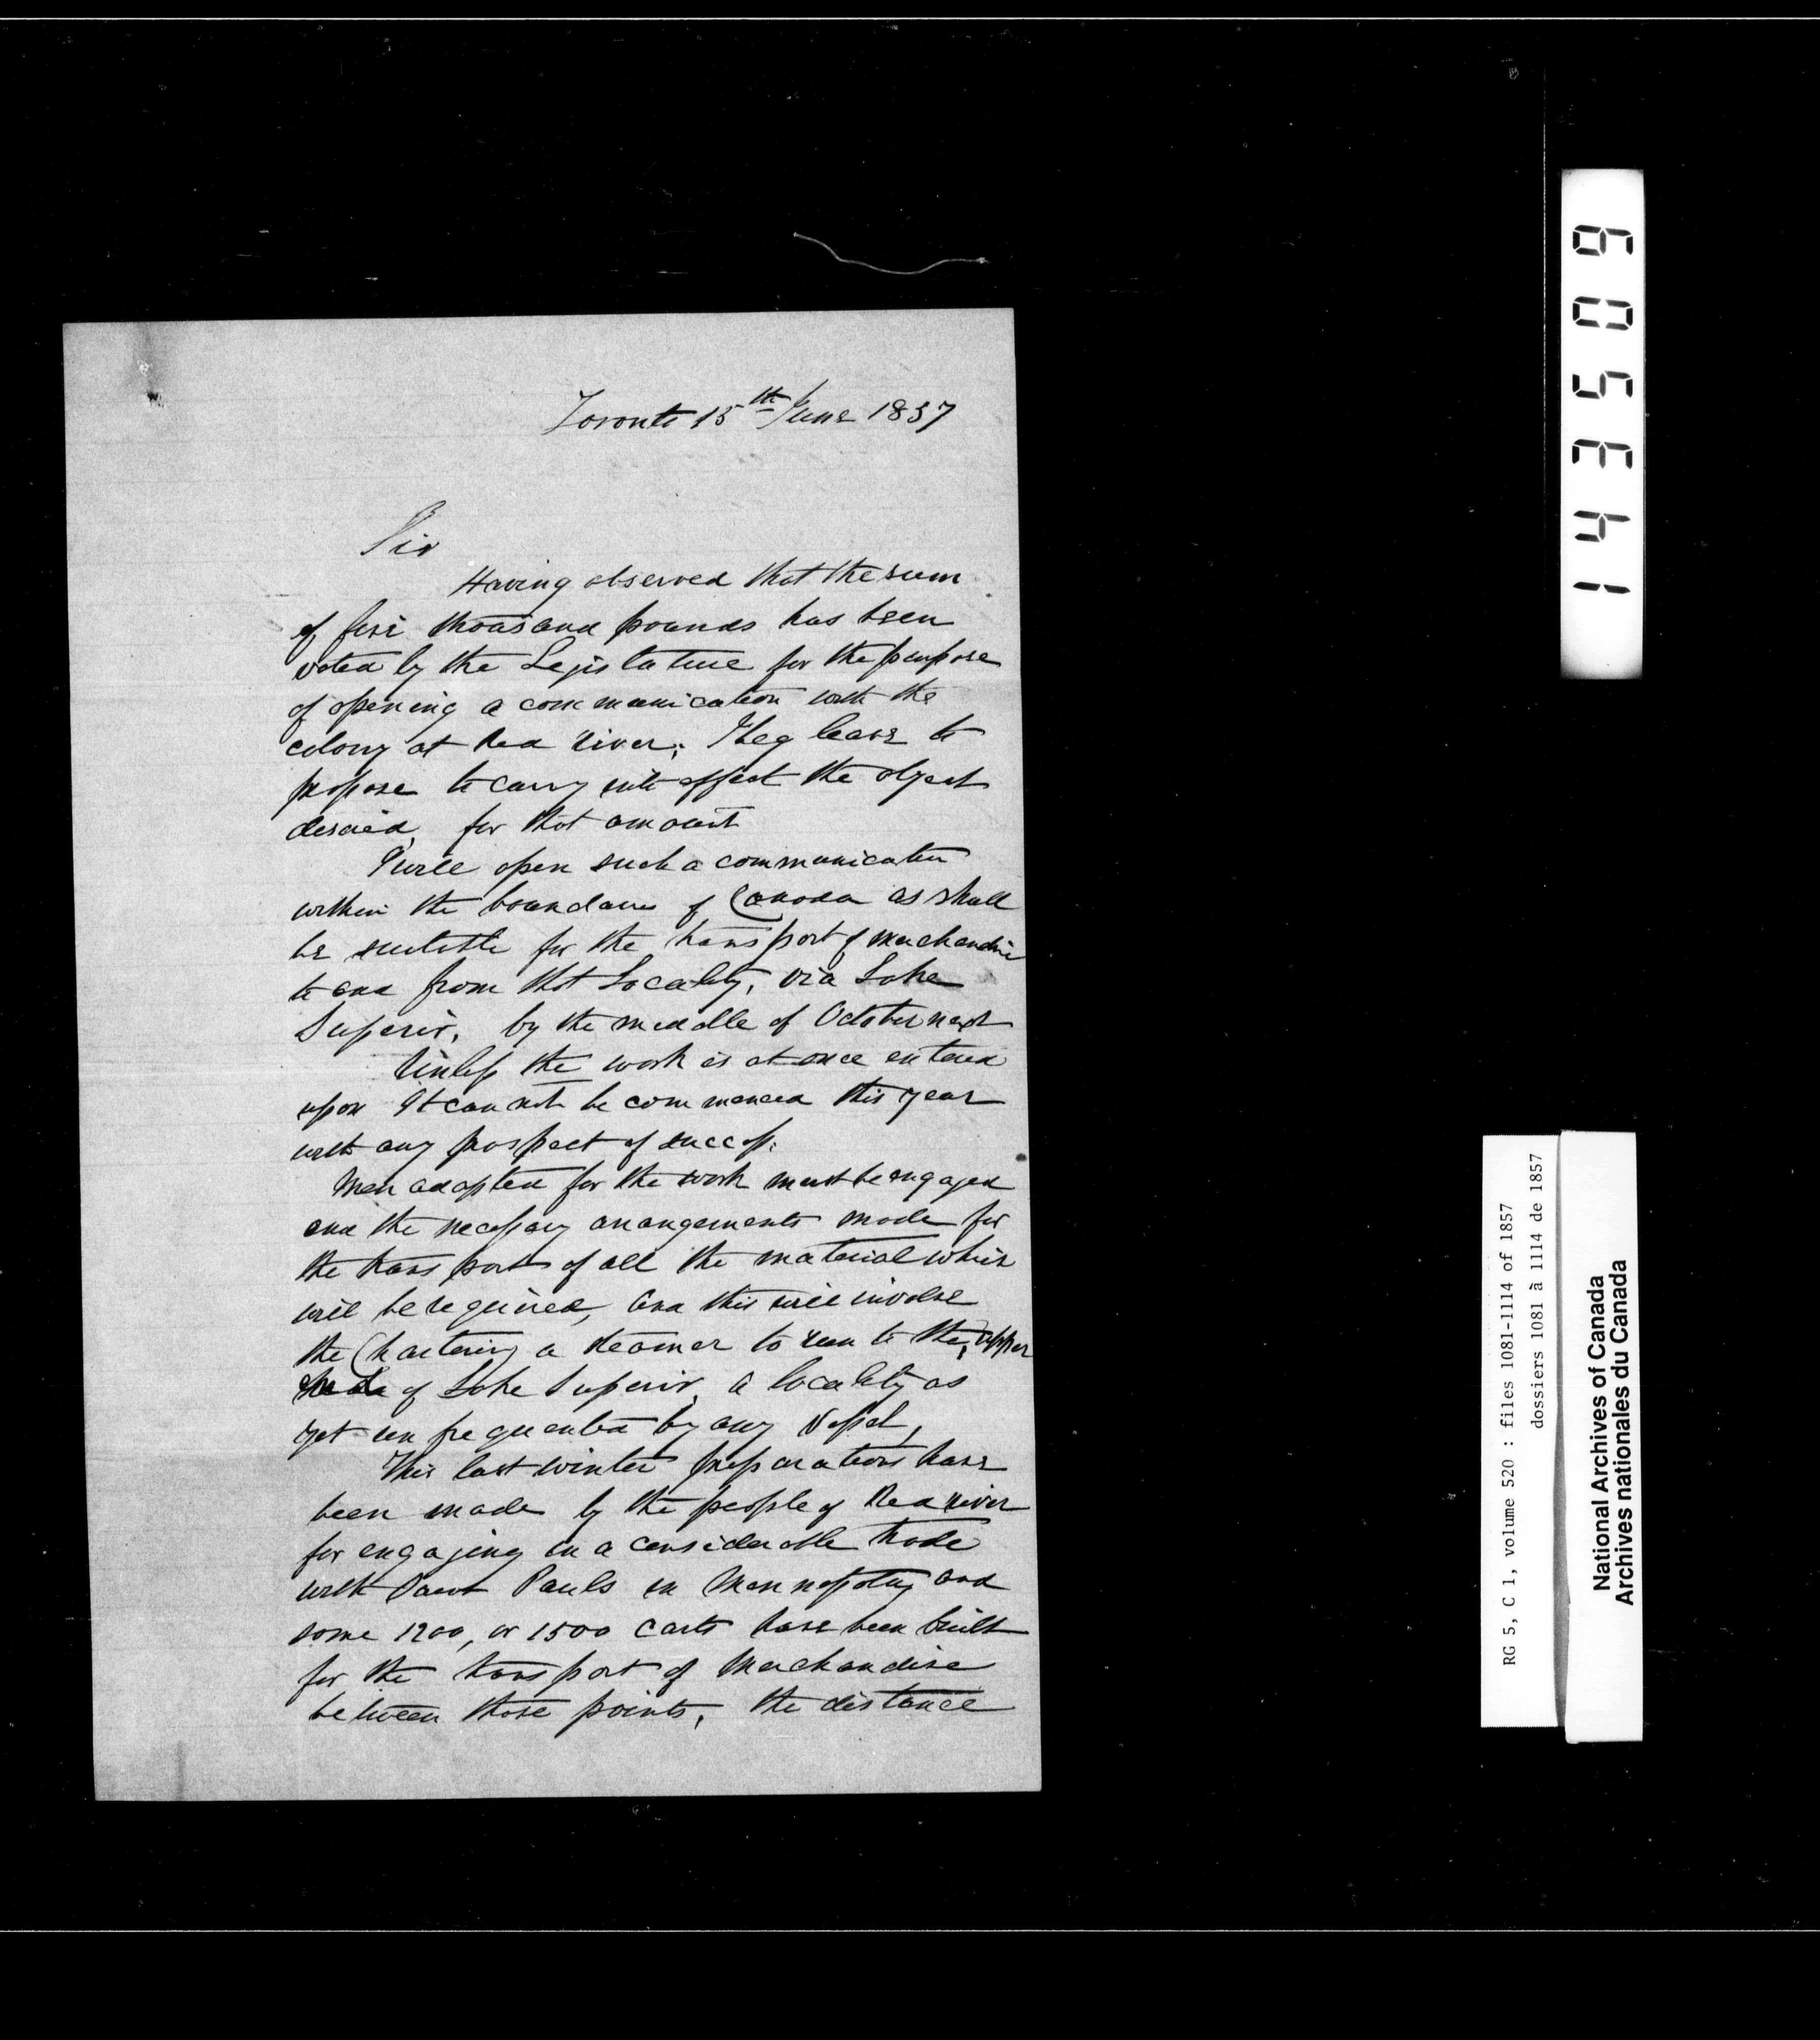 Toronto 15th June 1857
Sir
Having observed that the sum
of five thousand pounds has been
voted by the Legislature for the purpose
of opening a communication with the
colony at Red River; I beg leave to
propose to carry into effect the object
desired, for that amount
I will open such a communication
within the boundaries of Canada as shall
be suitable for the transport of merchandise
to and from that Locality, via Lake
Superior, by the middle of October next
Unless the work is at once entered
upon It can not be commenced this year
with any prospect of success.
Men adapted for the work must be engaged
and the necessary arrangements made for
the transport of all the material which
will be required, and this will involve
the Chartering a steamer to run to the upper
of Lake Superior, a locality as
yet unfrequented by any Vessel,
This last winter preparations have
been made by the people of Red River
for engaging in a considerable trade
with Saint Pauls in Mennesotay and
some 1200, or 1500 carts have been built
for the transport of Merchandise
between those points, the distance
143509
RG 5, C 1, volume 520 : files 1081-1114 of 1857
dossiers 1081 à 1114 de 1857
National Archives of Canada
Archives nationales du Canada